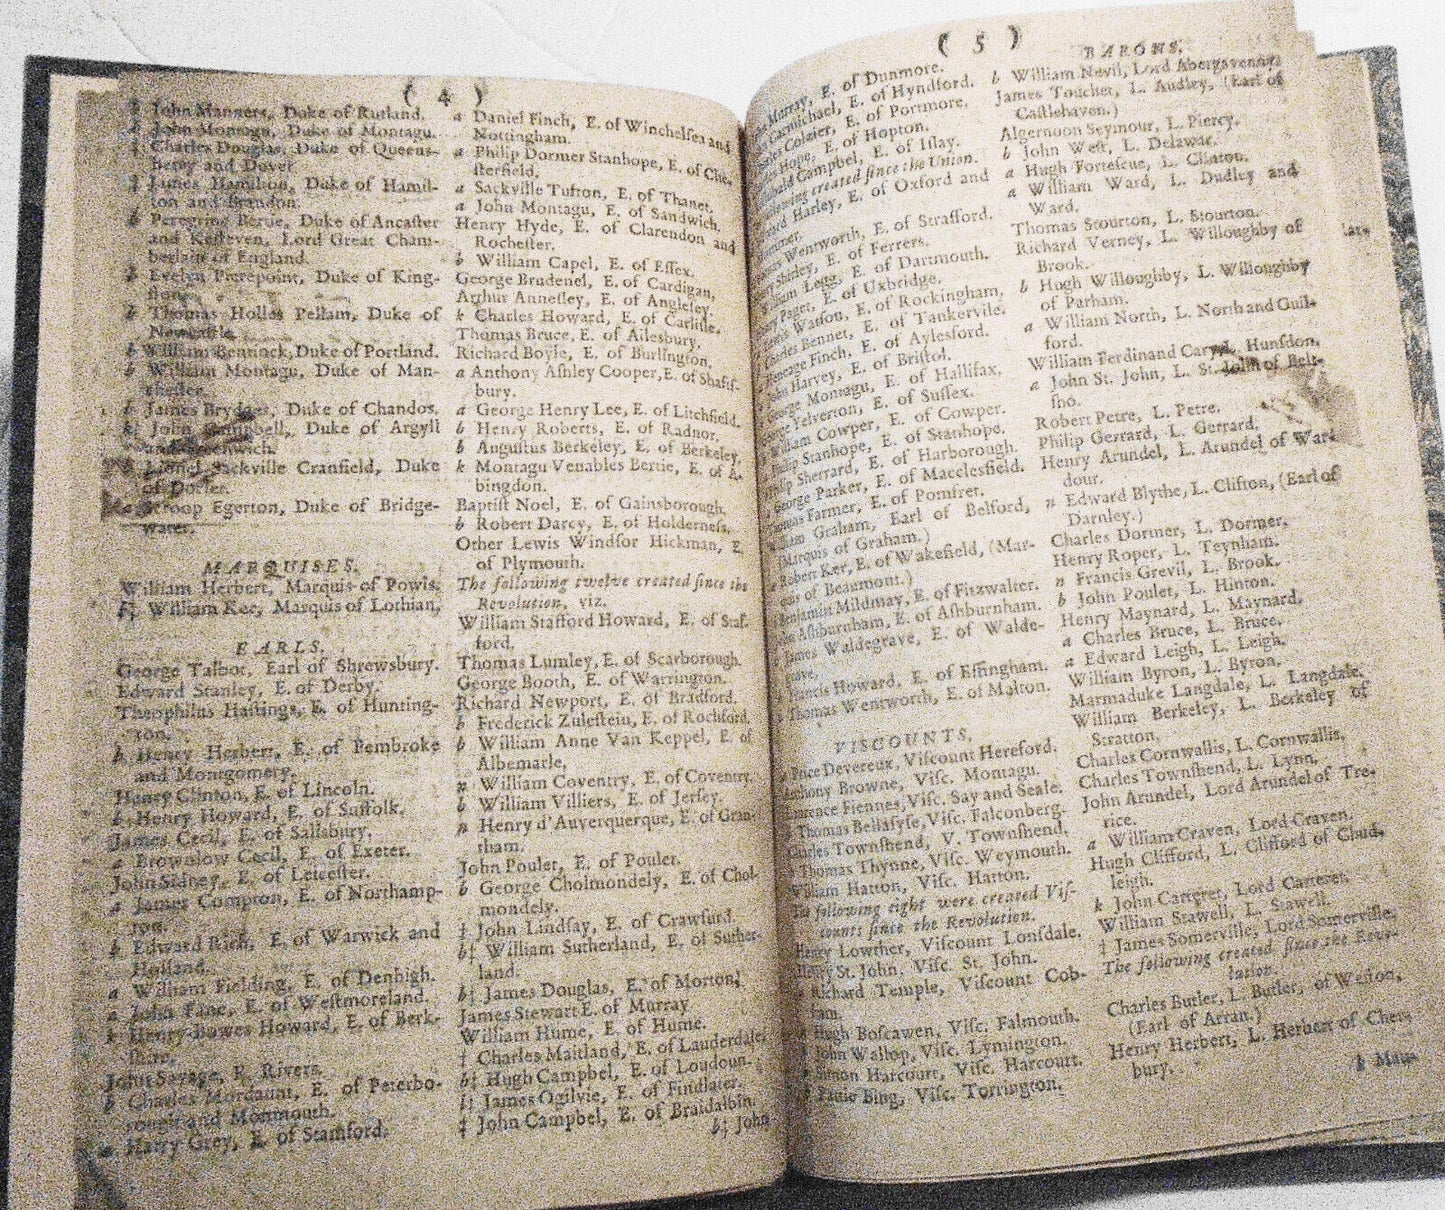 ( 4 )
John Manners, Duke of Rutland.
John Montagu, Duke of Montagu.
Charles Douglas, Duke of Queens-
berry and Dover
James Hamilton, Duke of Hamil-
ton and Brandon.
b Peregrine Bertie, Duke of Ancaster
and Kesteven, Lord Great Cham-
berlain of England.
Evelyn Pierepoint, Duke of King-
ston.
b Thomas Holles Pellam, Duke of
Newcastle.
b William Bentinck, Duke of Portland.
b William Montagu, Duke of Man-
chester.
b James Brydges, Duke of Chandos.
John Campbell, Duke of Argyll
and Greenwich.
Lionel Sackville Cranfield, Duke
of Dorset.
Scroop Egerton, Duke of Bridge-
water.
MARQUISES.
William Herbert, Marquis of Powis.
William Ker, Marquis of Lothian,
EARLS.
George Talbot, Earl of Shrewsbury.
Edward Stanley, E. of Derby.
Theophilus Hastings, E. of Hunting-
ton.
b Henry Herbert, E. of Pembroke
and Montgomery.
Henry Clinton, E. of Lincoln.
b Henry Howard, E. of Suffolk.
James Cecil, E. of Salisbury.
a Brownlow Cecil, E. of Exeter.
John Sidney, E. of Leicester.
a James Compton, E. of Northamp-
ton.
b Edward Rich, E. of Warwick and
Holland.
a William Fielding, E. of Denbigh.
a John Fane, E. of Westmoreland.
b Henry Bowes Howard, E. of Berk-
shire.
John Savage, E. Rivers.
b Charles Mordaunt, E. of Peterbo-
rough and Monmouth.
a Harry Grey, E. of Stamford.
a Daniel Finch, E. of Winchelsea and
Nottingham.
a Philip Dormer Stanhope, E. of Che-
sterfield.
a Sackville Tufton, E. of Thanet.
a John Montagu, E. of Sandwich.
Henry Hyde, E. of Clarendon and
Rochester.
b William Capel, E. of Essex.
George Brudenel, E. of Cardigan,
Arthur Annesley, E. of Anglesey.
k Charles Howard, E. of Carlisle.
Thomas Bruce, E. of Ailesbury.
Richard Boyle, E. of Burlington,
a Anthony Ashley Cooper, E. of Shafts-
bury.
a George Henry Lee, E. of Litchfield.
b Henry Roberts, E. of Radnor.
b Augustus Berkeley, E. of Berkeley.
k Montagu Venables Bertie, E. of A-
bingdon.
Baptist Noel, E. of Gainsborough.
b Robert Darcy, E. of Holderness.
Other Lewis Windsor Hickman, E.
of Plymouth.
The following twelve created since the
Revolution, viz.
William Stafford Howard, E. of Staf-
ford,
Thomas Lumley, E. of Scarborough.
George Booth, E. of Warrington.
Richard Newport, E. of Bradford.
b Frederick Zulestein, E. of Rochford.
b William Anne Van Keppel, E. of
Albemarle,
n William Coventry, E. of Coventry.
b William Villiers, E. of Jersey.
n Henry d'Auverquerque, E. of Gran-
tham.
John Poulet, E. of Poulet.
b George Cholmondely, E. of Chol-
mondely.
‡ John Lindsay, E. of Crawfurd.
b‡ William Sutherland, E. of Suther-
land.
b‡ James Douglas, E. of Morton,
James Stewart E. of Murray
William Hume, E. of Hume.
‡ Charles Maitland, E. of Lauderdale
b‡ Hugh Campbel, E. of Loudoun.
b‡ James Ogilvie, E. of Findlater.
‡ John Campbel, E. of Braidalbin.
b‡ John
( 5 )
Murray, E. of Dunmore.
Carmichael, E. of Hyndford.
Colaier, E. of Portmore.
Hope, E. of Hopton.
Campbel, E. of Islay.
following created since the Union.
Harley, E. of Oxford and
Mortimer.
Wentworth, E. of Strafford.
Shirley, E. of Ferrers.
William Legg, E. of Dartmouth.
Henry Paget, E. of Uxbridge.
Watson, E. of Rockingham,
Charles Bennet, E. of Tankervile.
Heneage Finch, E. of Aylesford.
John Harvey, E. of Bristol.
George Montagu, E. of Hallifax,
George Yelverton, E. of Sussex.
William Cowper, E. of Cowper.
Philip Stanhope, E. of Stanhope.
Philip Sherrard, E. of Harborough.
George Parker, E. of Macclesfield.
Thomas Farmer, E. of Pomfret.
William Graham, Earl of Belford,
(Marquis of Graham.)
Robert Ker, E. of Wakefield, (Mar-
quis of Beaumont.)
Benjamin Mildmay, E. of Fitzwalter.
John Ashburnham, E. of Ashburnham.
James Waldegrave, E. of Walde-
grave,
Francis Howard, E. of Effingham.
Thomas Wentworth, E. of Malton.
VISCOUNTS,
Price Devereux, Viscount Hereford.
Anthony Browne, Visc. Montagu.
Laurence Fiennes, Visc. Say and Seale.
Thomas Bellasyse, Visc. Falconberg.
Charles Townshend, V. Townshend.
Thomas Thynne, Visc. Weymouth.
William Hatton, Visc. Hatton.
The following eight were created Vis-
counts since the Revolution.
Henry Lowther, Viscount Lonsdale.
Henry St. John, Visc. St. John.
Richard Temple, Viscount Cob-
ham.
Hugh Boscawen, Visc. Falmouth.
John Wallop, Visc. Lymington.
Simon Harcourt, Visc. Harcourt.
Pattie Bing, Visc. Torrington.
BARONS.
b William Nevil, Lord Abergavenny
James Touchet, L. Audley, (Earl of
Castlehaven.)
Algernoon Seymour, L. Piercy.
b John West, L. Delawar.
a Hugh Fortescue, L. Clinton.
a William Ward, L. Dudley and
Ward.
Thomas Stourton, L. Stourton.
Richard Verney, L. Willoughby of
Brook.
b Hugh Willoughby, L. Willoughby
of Parham.
a William North, L. North and Guil-
ford.
William Ferdinand Cary, L. Hunsdon.
a John St. John, L. St. John of Belt-
sho.
Robert Petre, L. Petre.
Philip Gerrard, L. Gerrard.
Henry Arundel, L. Arundel of War-
dour.
n Edward Blythe, L. Clifton, (Earl of
Darnley.)
Charles Dormer, L. Dormer.
Henry Roper, L. Teynham.
n Francis Grevil, L. Brook.
b John Poulet, L. Hinton.
Henry Maynard, L. Maynard,
a Charles Bruce, L. Bruce.
a Edward Leigh, L. Leigh.
William Byron, L. Byron.
Marmaduke Langdale, L. Langdale,
William Berkeley, L. Berkeley of
Stratton.
Charles Cornwallis, L. Cornwallis.
Charles Townshend, L. Lynn.
John Arundel, Lord Arundel of Tre-
rice.
a William Craven, Lord Craven.
Hugh Clifford, L. Clifford of Chud-
leigh.
k John Carteret, Lord Carteret.
William Stawell, L. Stawell.
‡ James Somerville, Lord Somerville.
The following created since the Revo-
lution.
Charles Butler, L. Butler, of Weston,
(Earl of Arran.)
Henry Herbert, L. Herbert of Cher-
bury.